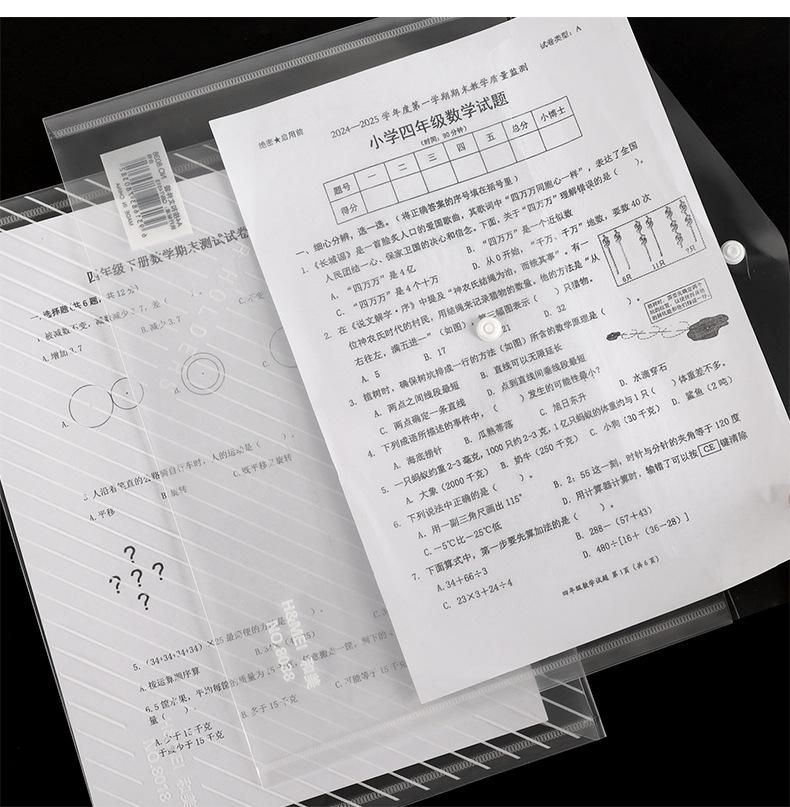 试卷类型：A
绝密★启用前
2024—2025学年度第一学期期末教学质量监测
小学四年级数学试题
（时间：90分钟）
题号 一 二 三 四 五 总分 小博士
得分
一、细心分辨，选一选。（将正确答案的序号填在括号里）
1.《长城谣》是一首脍炙人口的爱国歌曲，其歌词中“四万万同胞心一样”，表达了全国
人民团结一心、保家卫国的决心和信念。下面，关于“四万万”理解错误的是（ ）。
A. “四万万”是4亿 B. “四万万”是一个近似数
C. “四万万”是4个十万 D. 从0开始，“千万、千万”地数，要数40次
2. 在《说文解字·序》中提及“神农氏结绳为治，而统其事”。有一
位神农氏时代的村民，用结绳来记录猎物的数量，他的方法是“从
右往左，满五进一”（如图） 幅图表示（ ）只猎物。
A. 5 B. 17 21 D. 32
6只 11只 7只
3. 植树时，确保树坑排成一行的方法（如图）所含的数学原理是（ ）。
A. 两点之间线段最短 B. 直线可以无限延长
C. 两点确定一条直线 D. 点到直线间垂线段最短
4. 下列成语所描述的事件中，（ ）发生的可能性最小？
A. 海底捞针 B. 瓜熟蒂落 C. 旭日东升 D. 水滴穿石
5. 一只蚂蚁约重2-3毫克，1000只约2-3克，1亿只蚂蚁的体重约与1只（ ）体重差不多。
A. 大象（2000千克） B. 奶牛（250千克） C. 小狗（30千克） D. 鲨鱼（2吨）
6. 下列说法中正确的是（ ）。
A. 用一副三角尺画出115° B. 2：55这一刻，时针与分针的夹角等于120度
C. -5℃比-25℃低 D. 用计算器计算时，输错了可以按CE键清除
7. 下面算式中，第一步要先算加法的是（ ）。
A. 34+66÷3 B. 288-（57+43）
C. 23×3+24÷4 D. 480÷[16+（36-28）]
四年级数学试题 第1页（共6页）
四年级下册数学期末测试试卷
一.选择题(共6题，共12分)
被减数不变，减数减少3.7，差（ ）。
A.增加3.7 B.减少3.7 C.不变
A. C.
人沿着笔直的公路骑自行车时，人的运动是（ ）。
A.平移 B.旋转 C.既平移又旋转
? ? ? ? ?
5.（34+34+34+34）×25最简便的方
A.按运算顺序算
量（ ）。
A.少于15千克 B.多于15千克 C.可能等于15千克
H&MEI 和美
NO.8038
H&MEI 和美
NO.8018